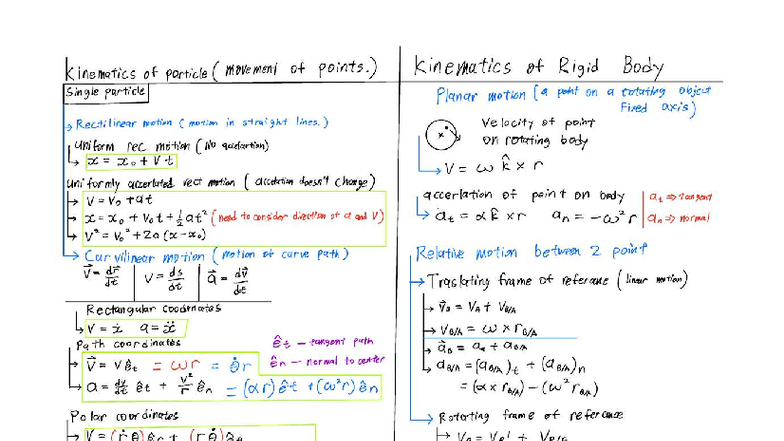 Kinematics of particle ( movement of points.)
Single particle
Rectilinear motion ( motion in straight lines.)
Uniform rec motion ( No acclertion)
x = x₀ + V t
Uniformly acclerlated rect motion ( acclelation doesn't change)
V = V₀ + at
x = x₀ + V₀t + ½at² (need to consider direction of a and V)
V² = V₀² + 2a (x-x₀)
Curvilinear motion ( motion of curve path)
V⃗ = dr⃗/dt | V = ds/dt | a⃗ = dv⃗/dt
Rectangular coordinates
V = ẋ a = ẍ
Path coordinates
ê_t - tangent path
ê_n - normal to center
V⃗ = V ê_t = ωr = θ̇r
a = dv/dt ê_t + v²/r ê_n = (αr)ê_t + (ω²r)ê_n
Polar coordinates
Kinematics of Rigid Body
Planar motion ( a point on a rotating object
Fixed axis)
Velocity of point
on rotating body
V = ω k̂ × r
accleration of point on body
a_t = α k̂ × r a_n = -ω² r
a_t ⇒ tangent
a_n ⇒ normal
Relative motion between 2 point
Traslating frame of referance ( linear motion)
V⃗_B = V_A + V_B/A
V_B/A = ω × r_B/A
a⃗_B = a_A + a_B/A
a_B/A = (a_B/A)_t + (a_B/A)_n
= (α × r_B/A) - (ω² r_B/A)
Rotating frame of referance